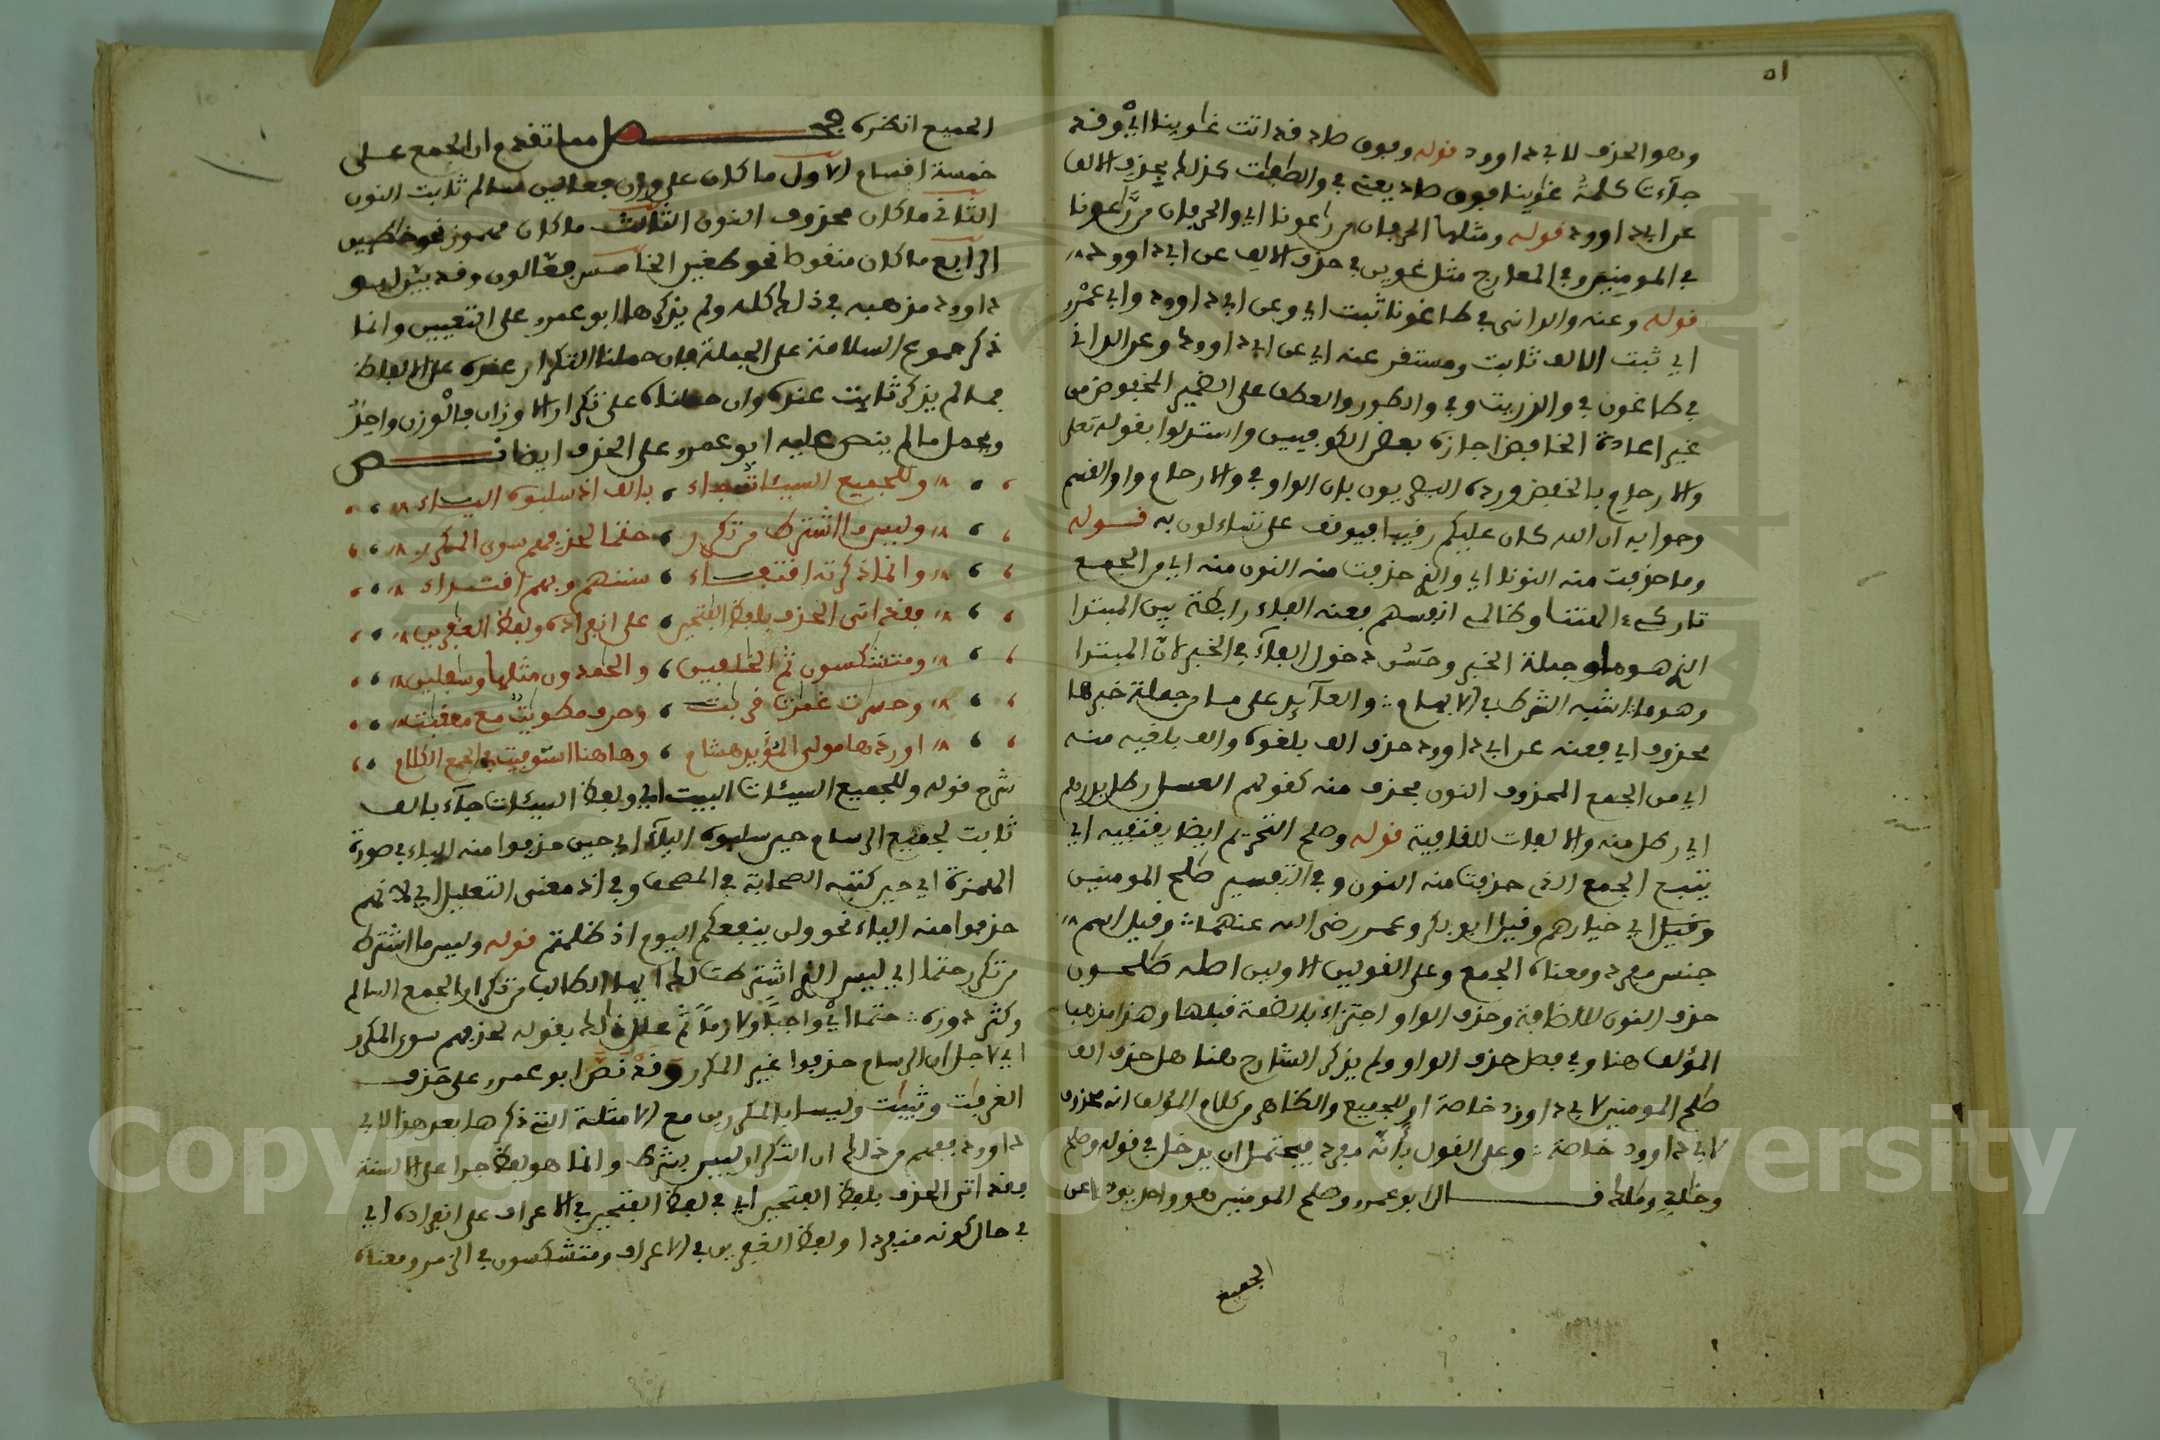 ٥١
وهو الحذف لابي داوود قوله وفوق صاد قد اتت غاوينا اي وقد
جاءت كلمة غاوين فوق صاد يعني في والصافات كذلك بحذف الالف
عن ابي داوود قوله ومثلها الحرفان راعونا اي والحرفان راعونا
في المومنين وفي المعارج مثل غوين في حذف الالف عن ابي داوود
قوله وعنه والداني في طاغونا ثبت اي وعن ابي داوود وابي عمرو
اي ثبت الالف ثابت ومستقر عنه اي عن ابي داوود وعن الداني
في طاغون في والذريت وفي والطور والعطف على الضمير المخفوض من
غير اعادة الخافض اجازه بعض الكوفيين واستدلوا بقوله تعلى
والارحام بالخفض ورده البصريون بان الواو في والارحام واو القسم
وجوابه ان الله كان عليكم رقيبا فيوقف على تساءلون به قوله
وما حذفت منه النونا اي والذي حذفت منه النون منه اي من الجمع
تاركي ءالهتنا وظالمي انفسهم فعنه الفاء رابطة بين المبتدا
الذي هو ما وجملة الخبر وحسن دخول الفاء في الخبر لان المبتدا
وهو ما اشبه الشرط في الابهام والعائد على ما من جملة خبرها
محذوف اي فعنه عن ابي داوود حذف الف بلغوه والف بلغيه منه
اي من الجمع المحذوف النون فحذف منه كقولهم العسل رطل بدرهم
اي رطل منه والالفات للقافية قوله وصلح التحريم ايضا يقتفيه اي
يتبع الجمع الذي حذفت منه النون وفي التفسير صلح المومنين
وقيل اي خيارهم وقيل ابو بكر وعمر رضي الله عنهما وقيل اسم
جنس مفرد ومعناه الجمع وعلى القولين الاولين اصله صلحون
حذف النون للاضافة وحذف الواو اجتزاء بالضمة قبلها وهذا مذهب
المؤلف هنا وفي فصل حذف الواو ولم يذكر الشارح هنا هل حذف الف
صلح المومنين لابي داوود خاصة او للجميع والظاهر من كلام المؤلف انه محذوف
لابي داوود خاصة وعلى القول بأنه مفرد فيحتمل ان يدخل في قوله وصلح
وخلد وملك قال ابو عمرو وصلح المومنين هو واحد يودي عن
الجميع
الجميع انظره فصل مما تقدم ان الجمع على
خمسة اقسام الاول ما كان على وزن فعالين سالم ثابت النون
الثاني ما كان محذوف النون الثالث ما كان مهموز نحو خاطئين
الرابع ما كان منقوط نحو طغين الخامس فعالون وقد بين ابو
داوود مذهبه في ذلك كله ولم يذكرها ابو عمرو على التعيين وانما
ذكر جموع السلامة على الجملة فان حملنا التكرار عنده على الالفاظ
فما لم يذكر ثابت عنده وان حملناه على تكرار الاوزان فالوزن واحد
ويحمل ما لم ينص عليه ابو عمرو على الحذف ايضا نص
وللجميع السيئات جاء بالف اذ سلبوه الياء
وليس ما اشترط من تكرر حتما لحذفهم سوى المكرر
وانما ذكرته اقتفاء سننهم وبهم اقتداء
فقد اتى الحذف بلفظ الفتحين على انفراد ولفظ الغفرين
ومتشكسون ثم الخلفين والحمدون مثلها وسفلين
وحسرت غمرات قربت وحرف مطويت مع معقبت
اوردها مولى المؤيد هشام وهاهنا استوفيت في الجمع الكلام
شرح قوله وللجميع السيئات البيت اي ولفظ السيئات جاء بالف
ثابت لجميع الرسام حين سلبوه الياء اي حين حذفوا منه الياء في صورة
الهمزة اي حين كتبه الصحابة في المصحف وفي اذ معنى التعليل اي لانهم
حذفوا منه الياء نحو ولن ينفعكم اليوم اذ ظلمتم قوله وليس ما اشترط
من تكرر حتما اي ليس الذي اشترطت لك ايها الطالب من تكرار الجمع السالم
وكثر دوره حتما اي واجبا ولازما ثم علل ذلك بقوله لحذفهم سوى المكرر
اي لاجل ان الرسام حذفوا غير المكرر وقد نص ابو عمرو على حذف
الغرفت وثيبات وليسا بالمكررين مع الامثلة التي ذكرها بعد هذا لابي
داوود ففهم من ذلك ان التكرار ليس بشرط وانما هو لفظ جرا على السنة
فقد اتى الحذف بلفظ الفتحين اي في لفظ الفتحين في الاعراف على انفراده اي
في حال كونه منفردا ولفظ الغفرين في الاعراف ومتشكسون في الزمر ومعناه
Copyright © King Saud University